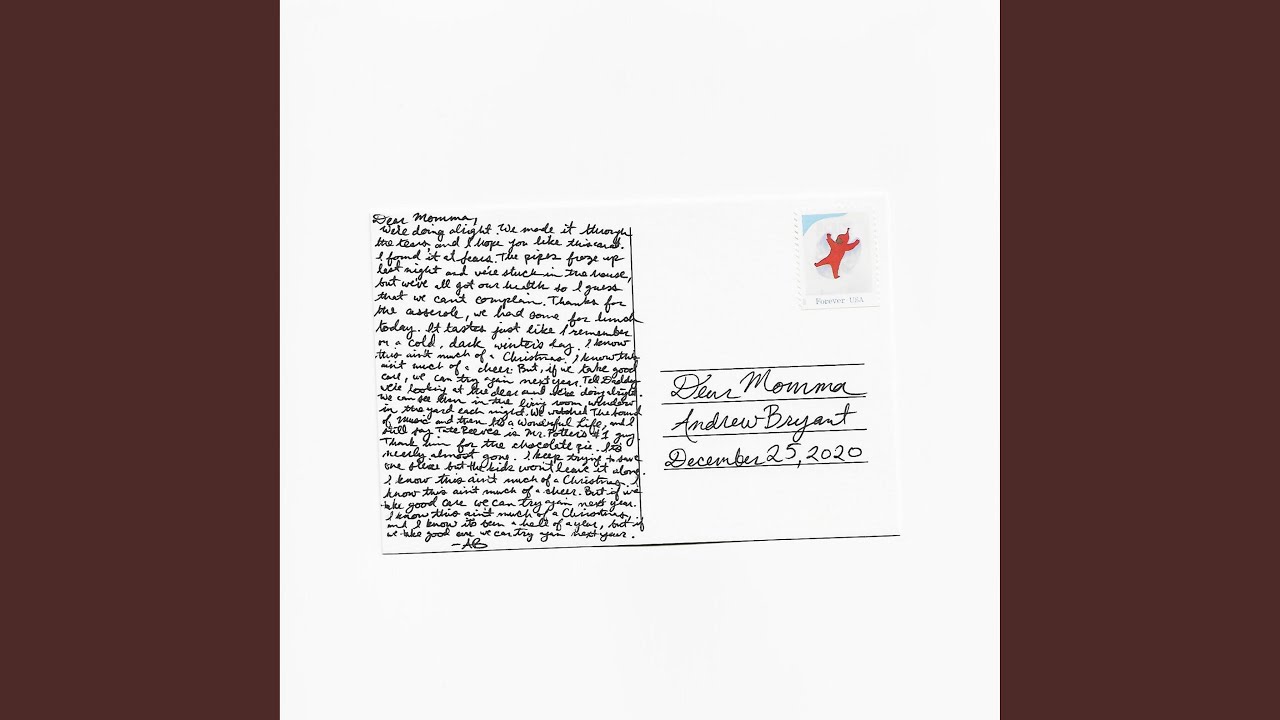 Dear Momma,
We're doing alright. We made it through
the tears, and I hope you like this card.
I found it at Sears. The pipes froze up
last night and we're stuck in the house,
but we've all got our health so I guess
that we can't complain. Thanks for
the casserole, we had some for lunch
today. It tastes just like I remember
on a cold, dark, winter's day. I know
this ain't much of a Christmas. I know this
ain't much of a cheer. But, if we take good
care, we can try again next year. Tell Daddy
we're looking at the deer and they're doing alright.
We can see them in the living room window
in the yard each night. We watched The Sound
of Music and then It's a Wonderful Life, and I
still say Tate Reeves is Mr. Potter's #1 guy.
Thank him for the chocolate pie. It's
nearly almost gone. I keep trying to save
one slice but the kids won't leave it alone.
I know this ain't much of a Christmas. I
know this ain't much of a cheer. But if we
take good care we can try again next year.
I know this ain't much of a Christmas,
and I know it's been a hell of a year, but if
we take good care we can try again next year.
-AB
Forever USA
Dear Momma
Andrew Bryant
December 25, 2020